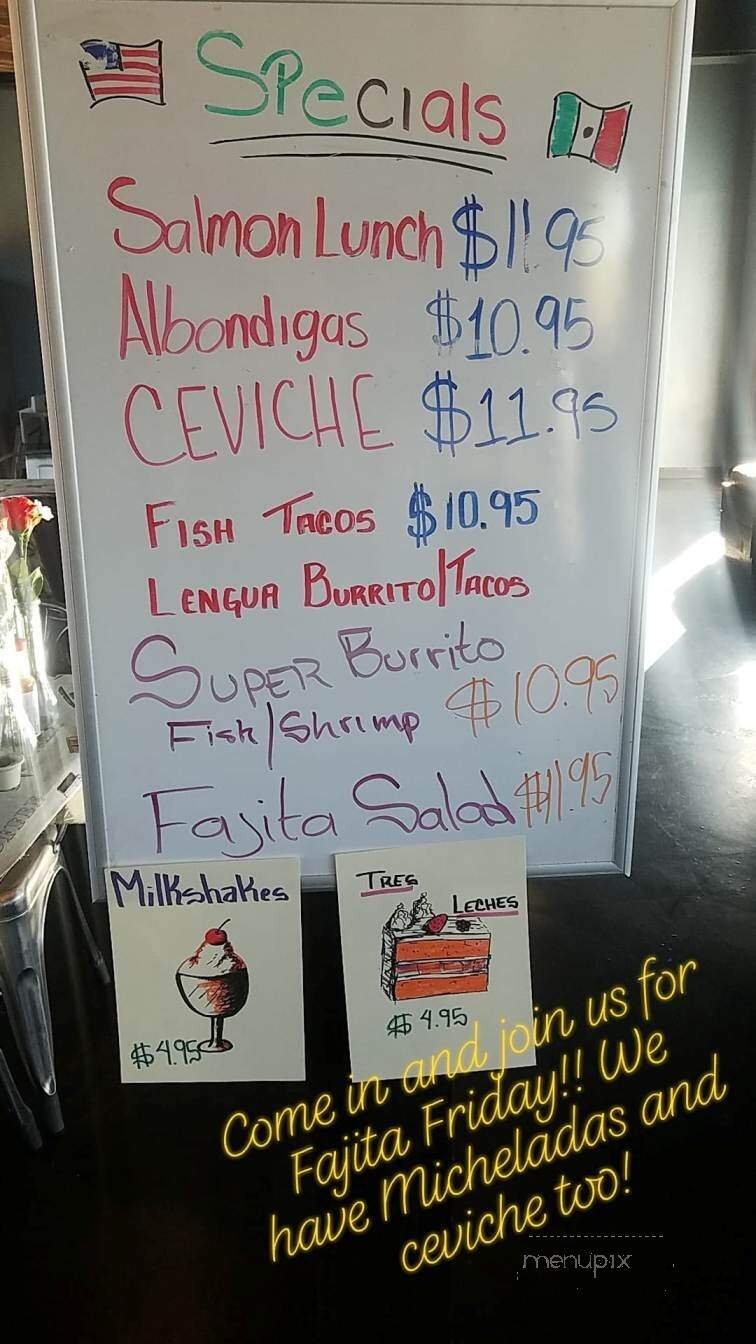 Specials
Salmon Lunch $11.95
Albondigas $10.95
CEVICHE $11.95
FISH TACOS $10.95
LENGUA BURRITO/TACOS
SUPER Burrito
Fish/Shrimp $10.95
Fajita Salad $11.95
Milkshakes
$4.95
TRES
LECHES
$4.95
Come in and join us for
Fajita Friday!! We
have Micheladas and
ceviche too!
menupix